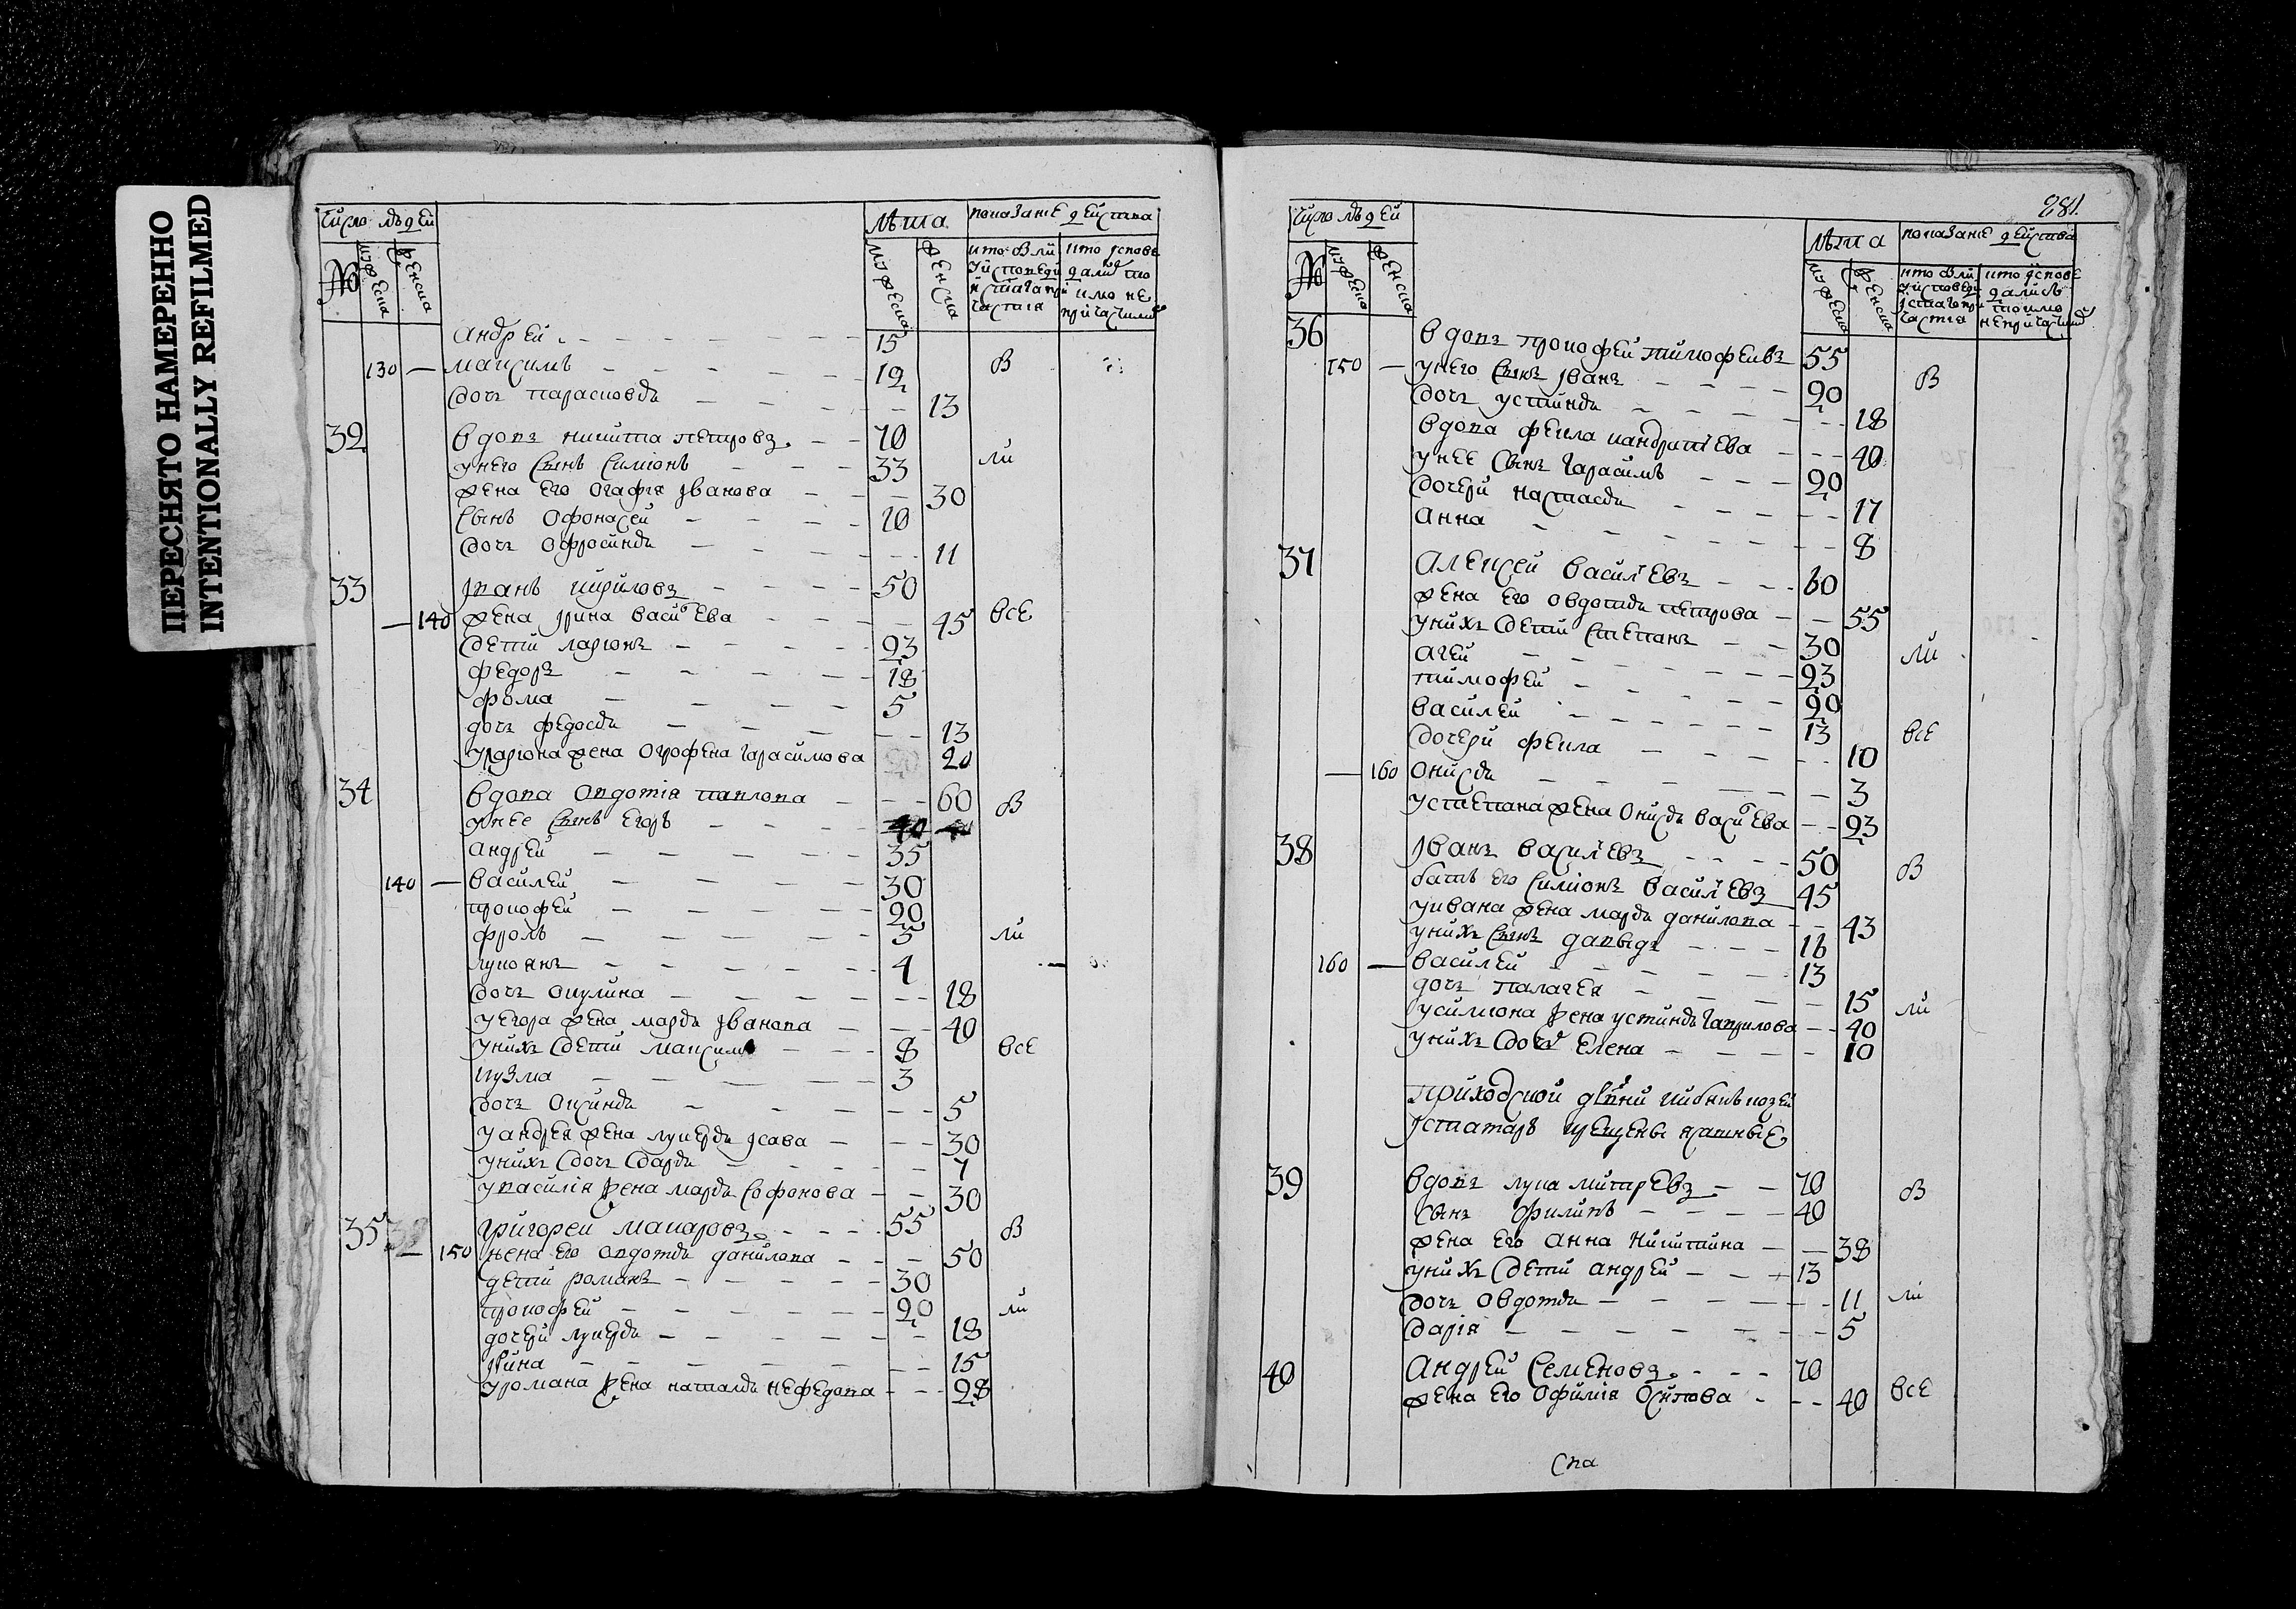 ПЕРЕСНЯТО НАМЕРЕННО
INTENTIONALLY REFILMED
Число людей
Лѣта
показание действа
№
мужеска
женска
мужеска
женска
Андрей 15
130 Максимъ 12 В
дочь Парасковья 13
32 вдовъ Никита Петровъ 70
у него сынъ Симионъ 33 ли
жена его Огафия Иванова 30
сынъ Офонасей 10
дочь Офросинья 11
33 Иванъ Кириловъ 50
140 жена Ирина Васильева 45 все
дети Ларионъ 23
Федоръ 18
Фома 5
дочь Федосья 13
у Лариона жена Огрофена Гарасимова 20
34 вдова Овдотия Павлова 60 В
у нее сынъ Егоръ 40
Андрей 35
140 Василей 30
Прокофей 20
Фролъ 5 ли
Лукоянъ 4
дочь Окулина 18
у Егора жена Марья Иванова 40
у нихъ дети Максимъ 8 все
Кузма 3
дочь Оксинья 5
у Андрея жена Лукерья Исава 30
у нихъ дочь Дарья 7
у Василия жена Марья Софонова 30
35 Григорей Макаровъ 55 В
150 жена его Овдотья Данилова 50
дети Романъ 30
Прокофей 20 ли
дочери Лукерья 18
Ирина 15
у Романа жена Наталья Нефедова 28
281
Число людей
Лѣта
показание действа
№
мужеска
женска
мужеска
женска
36 вдовъ Прокофей Тимофеевъ 55
150 у него сынъ Иванъ 20 В
дочь Устинья 18
вдова Фекла Кандратиева 40
у нее сынъ Гарасимъ 20
дочери Настасья 17
Анна 8
37 Алексей Василиевъ 60
жена его Овдотья Петрова 55
у нихъ дети Степанъ 30 ли
Агей 23
Тимофей 20
Василей 13 все
дочери Фекла 10
160 Онисья 3
у Степана жена Онисья Васильева 23
38 Иванъ Василиевъ 50 В
братъ его Симионъ Василиевъ 45
у Ивана жена Марья Данилова 43
у нихъ сынъ Давыдъ 16
160 Василей 13
дочь Палагея 15 ли
у Симиона жена Устинья Гаврилова 40
у нихъ дочь Елена 10
Приходской дѣвни
Истатаръ крещены
39 вдовъ Лука Митревъ 70 В
сынъ Филипъ 40
жена его Анна Никитина 38
у нихъ дети Андрей 13
дочь Овдотья 11 ли
Дария 5
40 Андрей Семеновъ 70
жена его Офимия Осипова 40 все